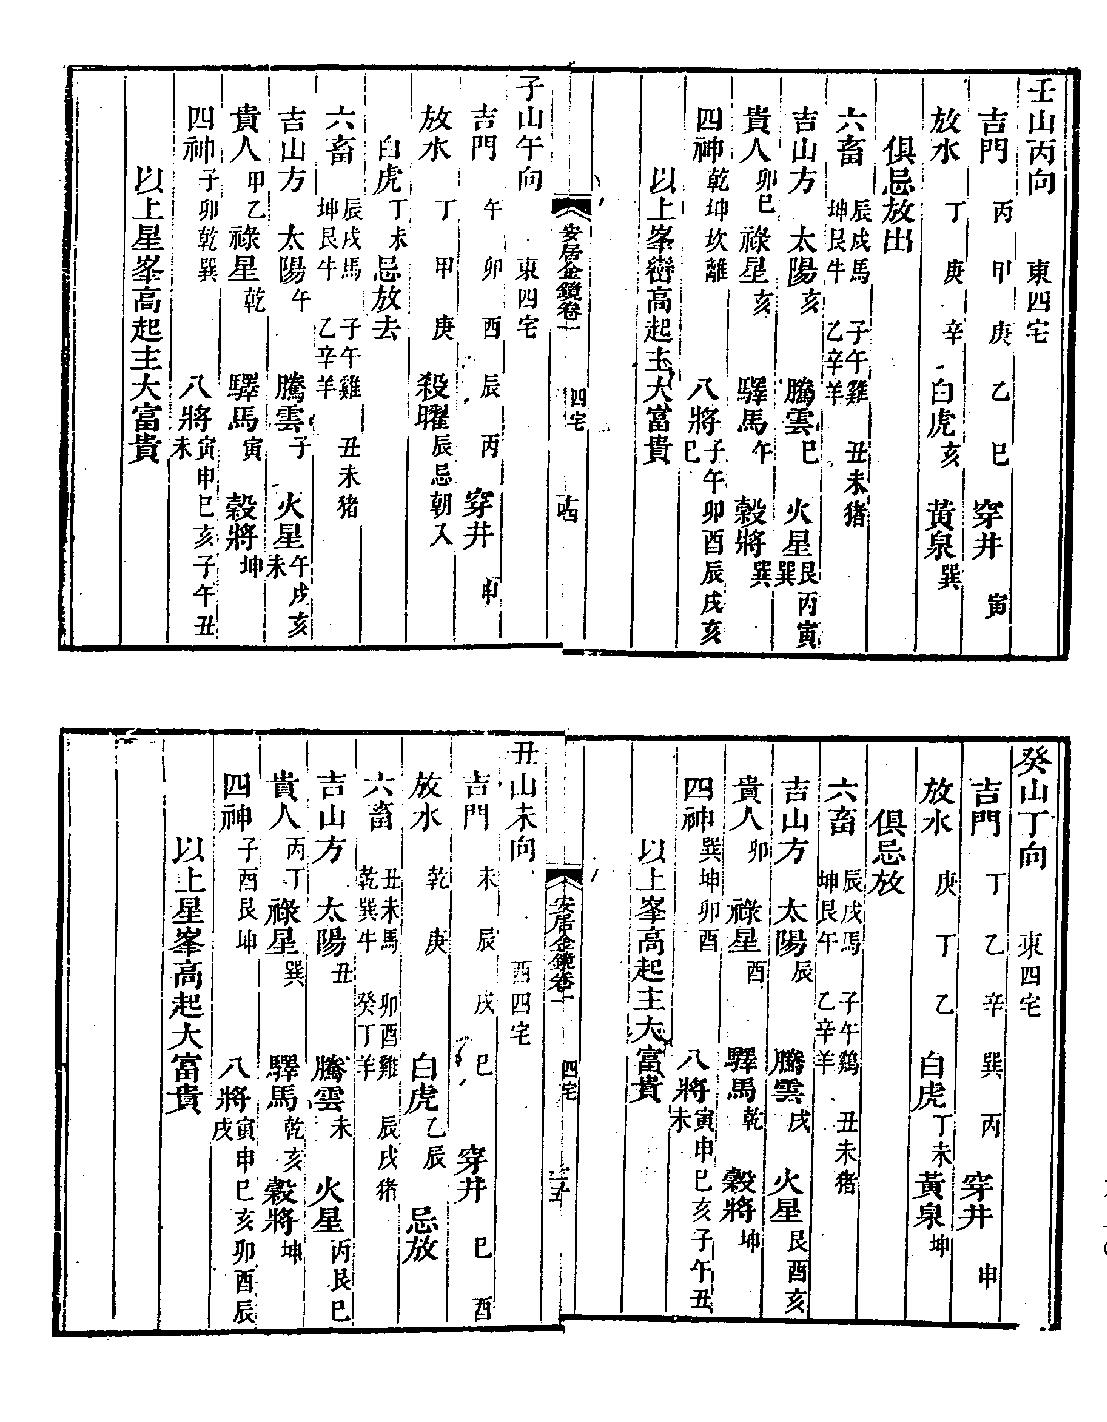 壬山丙向　東四宅
吉門　丙　甲　庚　乙　巳　穿井　寅
放水　丁　庚　辛　白虎亥　黃泉巽
俱忌放出
六畜　辰戌馬　坤艮牛　子午雞　乙辛羊　丑未猪
吉山方　太陽亥　騰雲巳　火星艮丙寅巽
貴人卯巳　祿星亥　驛馬午　榖將巽
四神乾坤坎離　八將子午卯酉辰戌亥巳
以上峯巒高起主大富貴
安居金鏡卷一　四宅
子山午向　東四宅
吉門　午　卯　酉　辰　丙　穿井　申
放水　丁　甲　庚　殺曜辰忌朝入
白虎丁未忌放去
六畜　辰戌馬　坤艮牛　子午雞　乙辛羊　丑未猪
吉山方　太陽午　騰雲子　火星午戌亥未
貴人甲乙　祿星乾　驛馬寅　榖將坤
四神子卯乾巽　八將寅申巳亥子午丑未
以上星峯高起主大富貴
癸山丁向　東四宅
吉門　丁　乙　辛　巽　丙　穿井　申
放水　庚　丁　乙　白虎丁未　黃泉坤
俱忌放
六畜　辰戌馬　坤艮午　子午鷄　乙辛羊　丑未猪
吉山方　太陽辰　騰雲戌　火星艮酉亥
貴人卯　祿星酉　驛馬乾　榖將坤
四神巽坤卯酉　八將寅申巳亥子午丑未
以上峯高起主大富貴
安居金鏡卷一　四宅
丑山未向　西四宅
吉門　未　辰　戌　巳　穿井　巳　酉
放水　乾　庚　白虎乙辰　忌放
六畜　丑未馬　乾巽牛　卯酉雞　癸丁羊　辰戌猪
吉山方　太陽丑　騰雲未　火星丙艮巳
貴人丙丁　祿星巽　驛馬乾亥　榖將坤
四神子酉艮坤　八將寅申巳亥卯酉辰戌
以上星峯高起大富貴